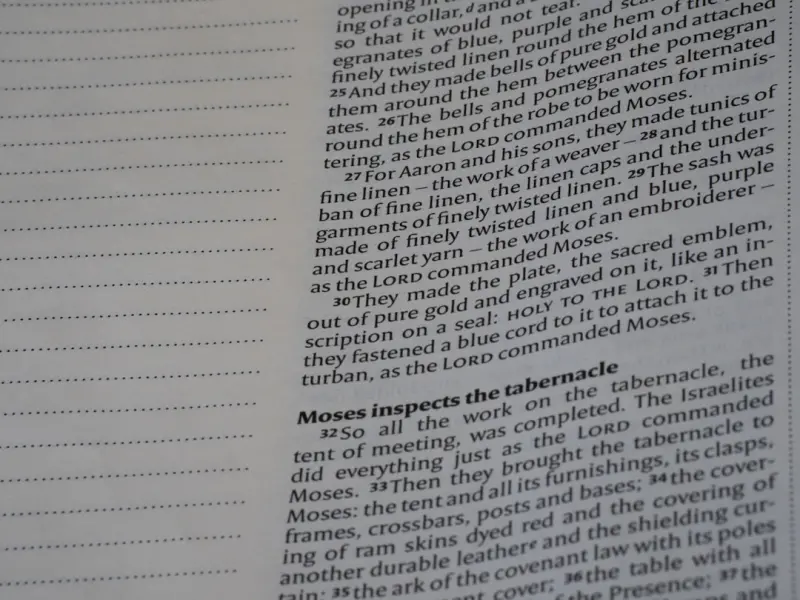 opening in the
ing of a collar,d and a
so that it would not tear.
egranates of blue, purple and
finely twisted linen round the hem of the
25And they made bells of pure gold and attached
them around the hem between the pomegran-
ates. 26The bells and pomegranates alternated
round the hem of the robe to be worn for minis-
tering, as the LORD commanded Moses.
27For Aaron and his sons, they made tunics of
fine linen – the work of a weaver – 28and the tur-
ban of fine linen, the linen caps and the under-
garments of finely twisted linen. 29The sash was
made of finely twisted linen and blue, purple
and scarlet yarn – the work of an embroiderer –
as the LORD commanded Moses.
30They made the plate, the sacred emblem,
out of pure gold and engraved on it, like an in-
scription on a seal: HOLY TO THE LORD. 31Then
they fastened a blue cord to it to attach it to the
turban, as the LORD commanded Moses.
Moses inspects the tabernacle
32So all the work on the tabernacle, the
tent of meeting, was completed. The Israelites
did everything just as the LORD commanded
Moses. 33Then they brought the tabernacle to
Moses: the tent and all its furnishings, its clasps,
frames, crossbars, posts and bases; 34the cover-
ing of ram skins dyed red and the covering of
another durable leathere and the shielding cur-
tain; 35the ark of the covenant law with its poles
cover; 36the table with all
of the Presence; 37the
and